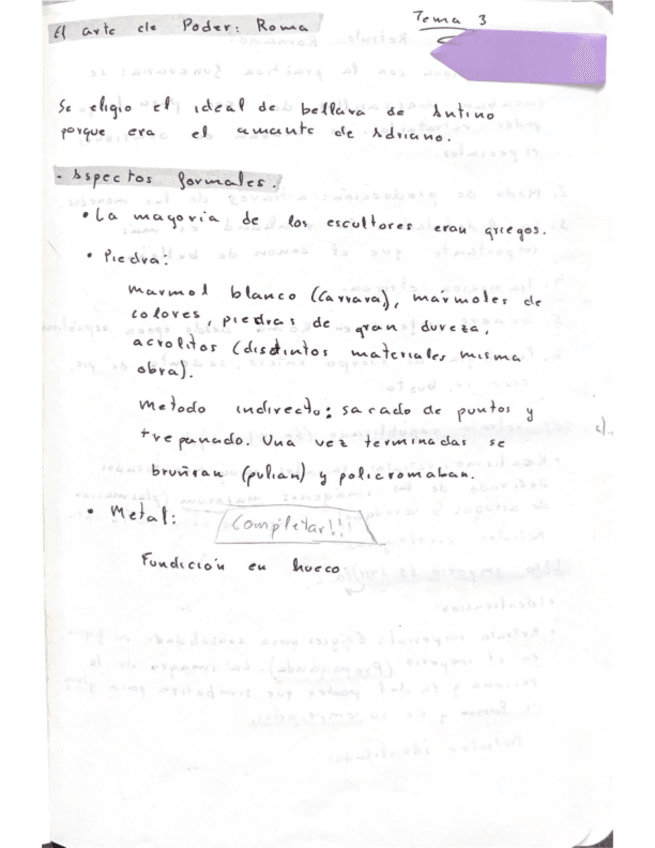 El arte de Poder: Roma
Tema 3
Se eligio el ideal de belleza de Antino
porque era el amante de Adriano.
- Aspectos formales.
• La mayoría de los escultores eran griegos.
• Piedra:
Marmol blanco (Carrara), mármoles de
colores, piedras de gran dureza,
acrolitos (distintos materiales misma
obra).
Metodo indirecto: sacado de puntos y
trepanado. Una vez terminadas se
bruñian (pulian) y policromaban.
• Metal: Completar!!¡
Fundición en hueco